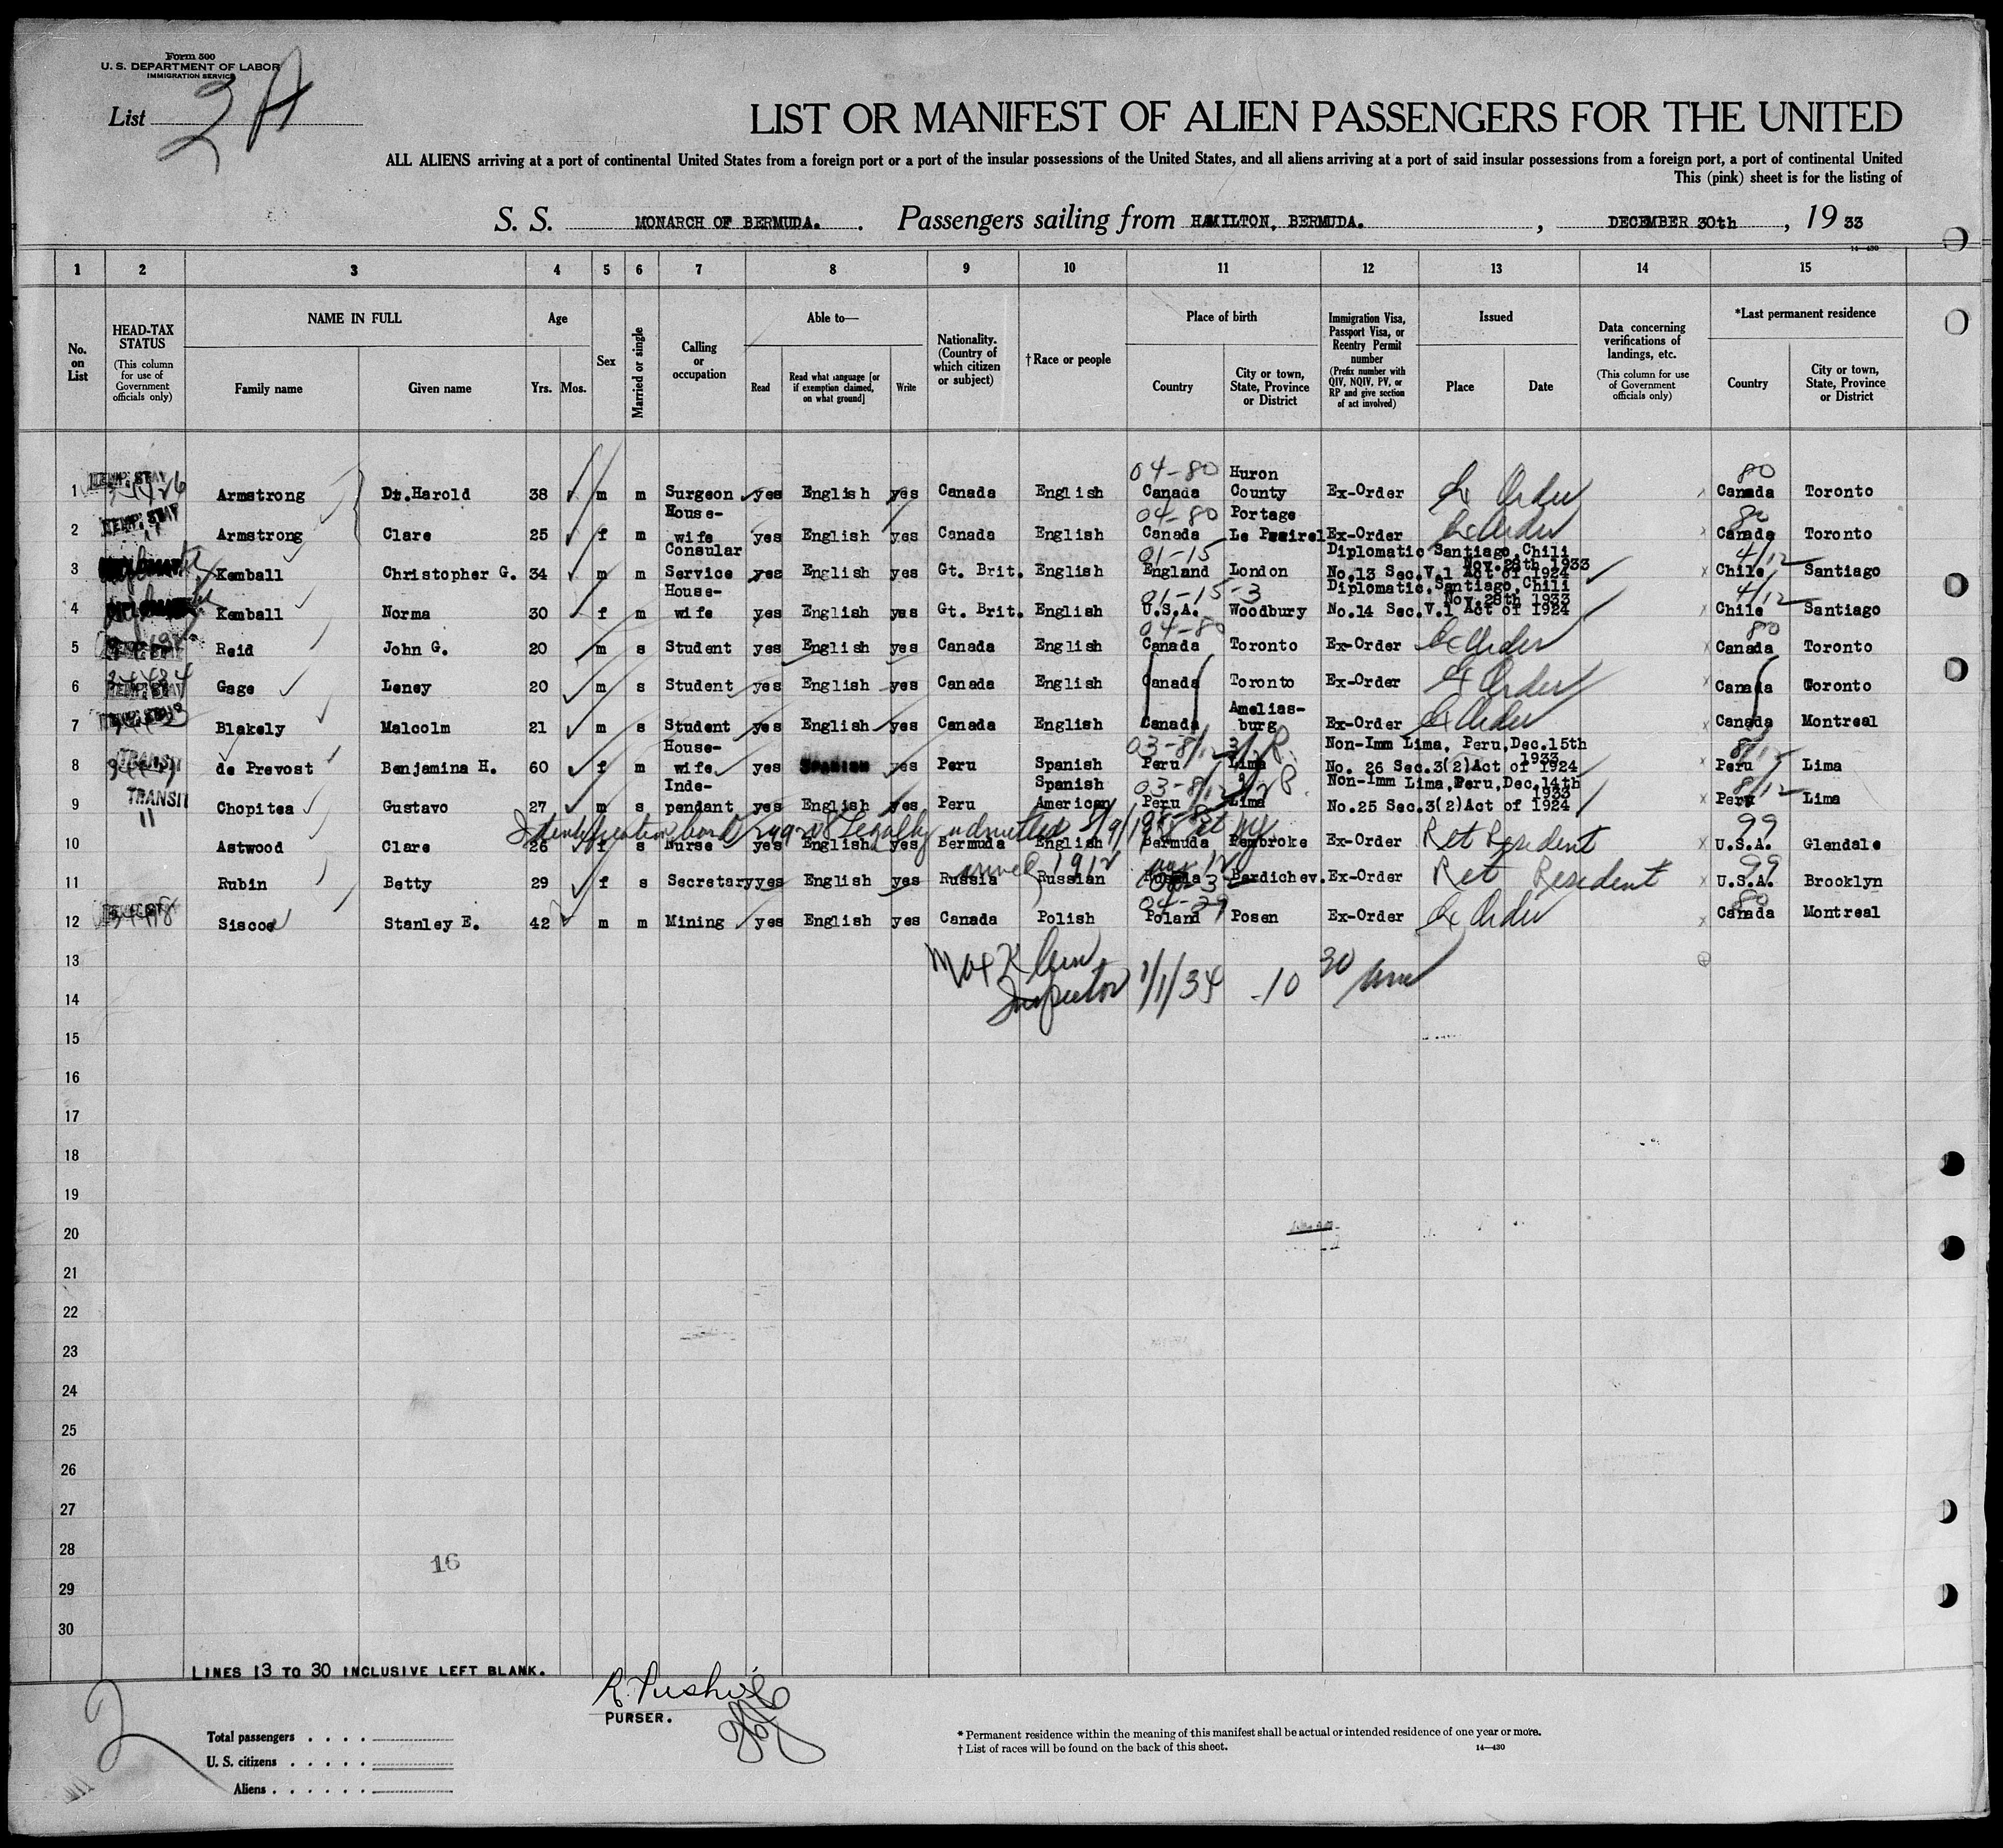 Form 500
U. S. DEPARTMENT OF LABOR
IMMIGRATION SERVICE
List 2 A
LIST OR MANIFEST OF ALIEN PASSENGERS FOR THE UNITED
ALL ALIENS arriving at a port of continental United States from a foreign port or a port of the insular possessions of the United States, and all aliens arriving at a port of said insular possessions from a foreign port, a port of continental United
This (pink) sheet is for the listing of
S. S. MONARCH OF BERMUDA. Passengers sailing from HAMILTON, BERMUDA. , DECEMBER 30th , 19 33
14—430
1 2 3 4 5 6 7 8 9 10 11 12 13 14 15
No. on List
HEAD-TAX STATUS (This column for use of Government officials only)
NAME IN FULL Family name Given name
Age Yrs. Mos.
Sex
Married or single
Calling or occupation
Able to— Read Read what language [or if exemption claimed, on what ground] Write
Nationality. (Country of which citizen or subject)
†Race or people
Place of birth Country City or town, State, Province or District
Immigration Visa, Passport Visa, or Reentry Permit number (Prefix number with QIV, NQIV, PV, or RP and give section of act involved)
Issued Place Date
Data concerning verifications of landings, etc. (This column for use of Government officials only)
*Last permanent residence Country City or town, State, Province or District
04-80 Huron 80
1 TEMP. STAY Armstrong Dr. Harold 38 m m Surgeon yes English yes Canada English Canada County Ex-Order Ex Order Canada Toronto
House- 04-80 Portage 80
2 TEMP. STAY Armstrong Clare 25 f m wife yes English yes Canada English Canada Ex-Order Ex Order Canada Toronto
Consular 01-15 Diplomatic Santiago, Chili Nov. 28th 1933 4/12
3 Kemball Christopher G. 34 m m Service yes English yes Gt. Brit. English England London No.13 Sec.V.1 Act of 1924 Chile Santiago
House- 01-15-3 Diplomatic. Santiago, Chili Nov. 28th 1933 4/12
4 Kemball Norma 30 f m wife yes English yes Gt. Brit. English U.S.A. Woodbury No.14 Sec.V.1 Act of 1924 Chile Santiago
04-80 80
5 Reid John G. 20 m s Student yes English yes Canada English Canada Toronto Ex-Order Ex Order Canada Toronto
6 TEMP. STAY Gage Leney 20 m s Student yes English yes Canada English Canada Toronto Ex-Order Ex Order Canada Toronto
Amelias-
7 Blakely Malcolm 21 m s Student yes English yes Canada English Canada burg Ex-Order Ex Order Canada Montreal
House- 03-8/12 Non-Imm Lima, Peru, Dec.15th 1933 8/12
8 TRANSIT de Prevost Benjamina H. 60 f m wife yes Spanish yes Peru Spanish Peru Lima No. 26 Sec.3(2)Act of 1924 Peru Lima
Inde- Spanish 03-8/12 Non-Imm Lima, Peru, Dec.14th 1933 8/12
9 TRANSIT Chopitea Gustavo 27 m s pendant yes English yes Peru American Peru Lima No.25 Sec.3(2)Act of 1924 Peru Lima
Identification card Legally admitted 99
10 Astwood Clare 26 f s Nurse yes English yes Bermuda English Bermuda Pembroke Ex-Order Ret Resident U.S.A. Glendale
arrived 1912 99
11 Rubin Betty 29 f s Secretary yes English yes Russia Russian Russia Berdichev. Ex-Order Ret Resident U.S.A. Brooklyn
04-29 80
12 Siscoe Stanley E. 42 m m Mining yes English yes Canada Polish Poland Posen Ex-Order Ex Order Canada Montreal
13
Max Klein
14
Inspector 1/1/34 -10 30 am
15
16
17
18
19
20
21
22
23
24
25
26
27
28
16
29
30
LINES 13 TO 30 INCLUSIVE LEFT BLANK.
2
PURSER.
Total passengers . . . .
U. S. citizens . . . . .
Aliens . . . . . .
* Permanent residence within the meaning of this manifest shall be actual or intended residence of one year or more.
† List of races will be found on the back of this sheet.
14—430